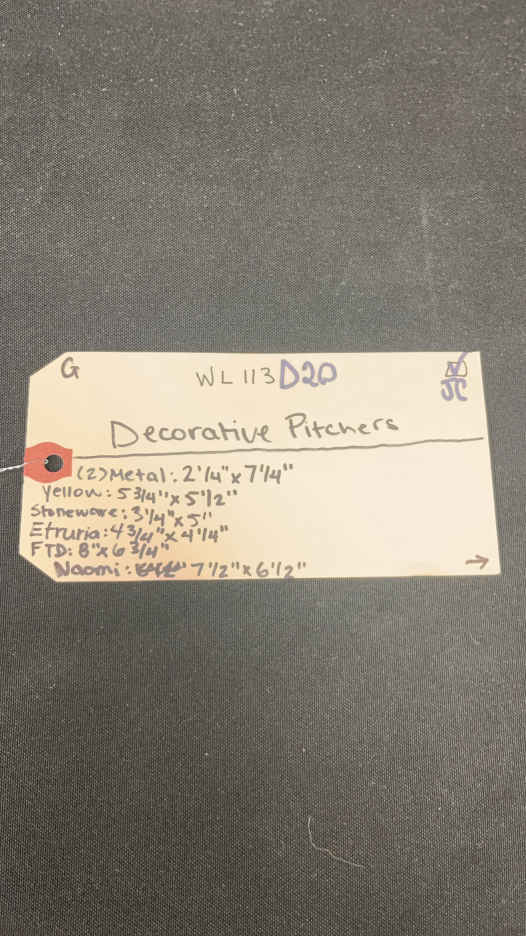 G
WL 113 D20
JC
Decorative Pitchers
(2) Metal: 2 1/4" x 7 1/4"
Yellow: 5 3/4" x 5 1/2"
Stoneware: 3 1/4" x 5"
Etruria: 4 3/4" x 4 1/4"
FTD: 8" x 6 3/4"
Naomi: 7 1/2" x 6 1/2"